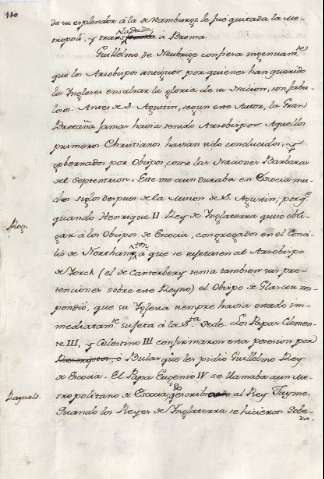 110
de su esplendor á la de Hamburgo le fue quitada la Me-
tropoli, y trasladada á Brema.
Guillelmo de Neubrig confiesa ingenuam.te
que los Arzobispos antiguos por quienes han querido
los Ingleses ensalzar la gloria de su Nacion, son fabu-
losos. Antes de S. Agustin, segun este Autor, la Gran
Bretaña jamas havia tenido Arzobispos. Aquellos
primeros Christianos havian sido conducidos, y
gobernados por Obispos, como las Naciones Barbaras
del Septentrion. Este uso aun duraba en Escocia mu-
chos siglos despues de la Mision de S. Agustin, porq.e
quando Henrique II Rey de Inglaterra quiso obli-
gar á los Obispos de Escocia, congregados en el Conci-
lio de Northampton á que se sujetasen al Arzobispo
de Yorck (el de Cantorbery tenia tambien sus pre-
tenciones sobre este Reyno) el Obispo de Glascou res-
pondió, que su Yglesia siempre havia estado in-
mediatam.te sujeta á la S.ta Sede. Los Papas Clemen-
te III, y Celestino III confirmaron esta posesion por
ó Bulas que les pidió Guillelmo Rey
de Escocia. El Papa Eugenio IV se llamaba aun me-
tropolitano de Escocia, escribiendo al Rey Jayme.
Quando los Reyes de Inglaterra se hicieron Sobe-
ra-
Raynald.